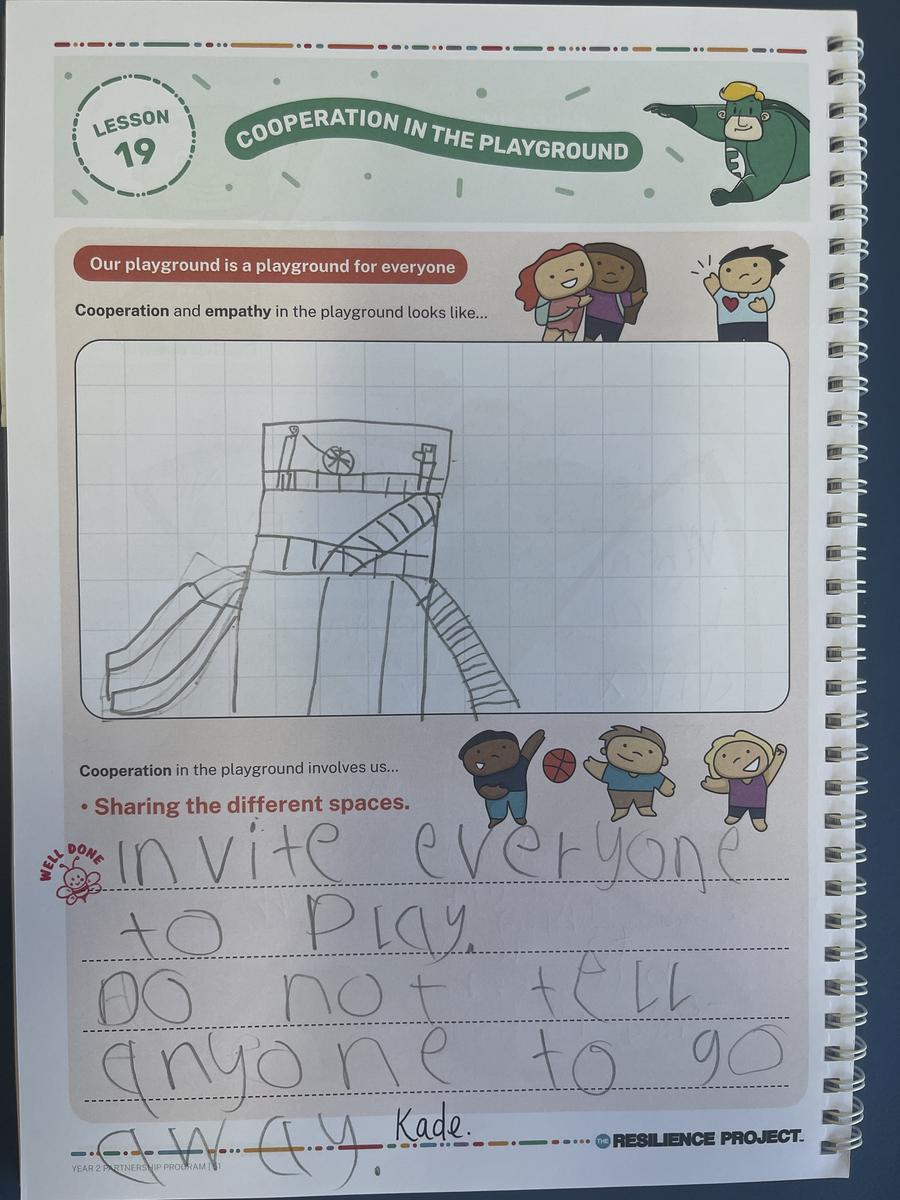 LESSON
19
COOPERATION IN THE PLAYGROUND
E
Our playground is a playground for everyone
Cooperation and empathy in the playground looks like...
Cooperation in the playground involves us...
• Sharing the different spaces.
WELL DONE
invite everyone
to Play.
DO not tell
anyone to go
away.
Kade.
THE RESILIENCE PROJECT.
YEAR 2 PARTNERSHIP PROGRAM |